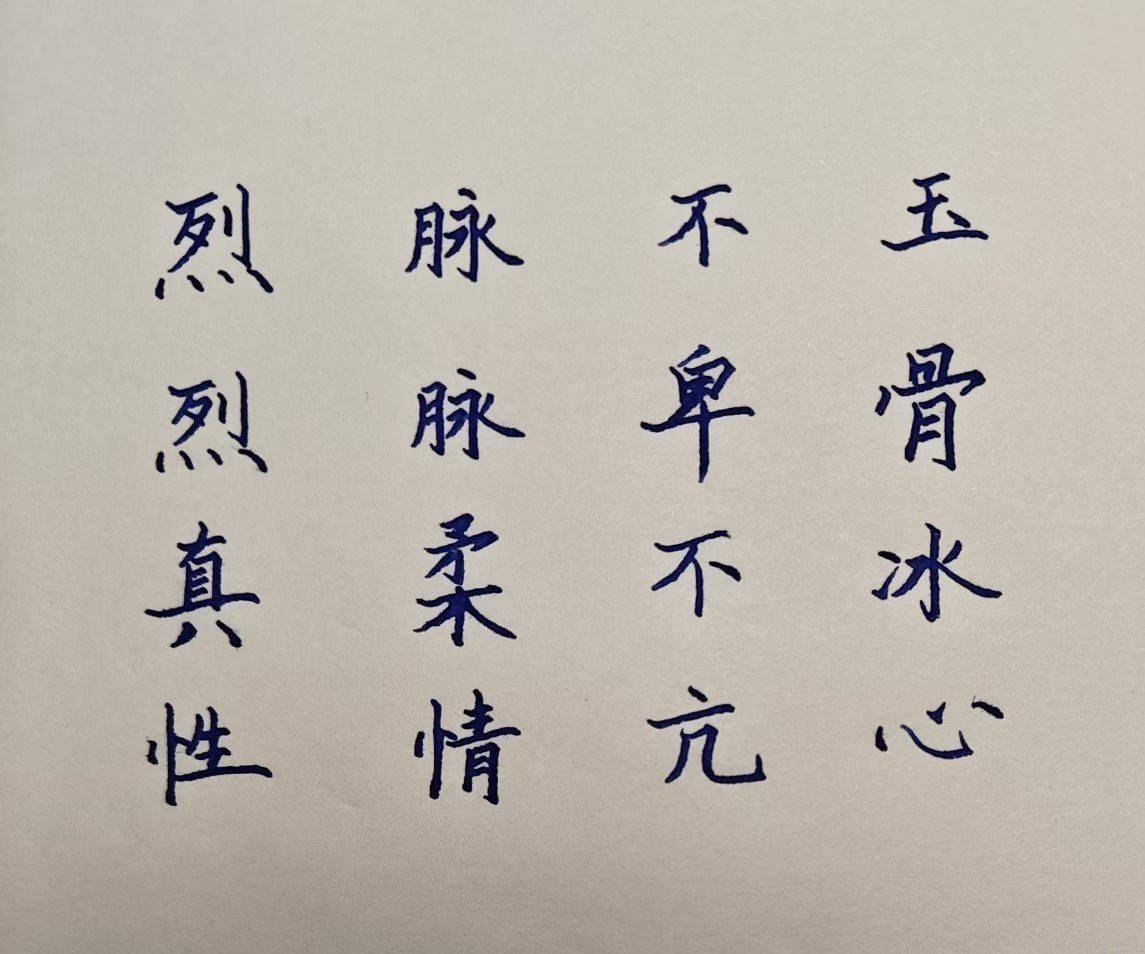 玉骨冰心
不卑不亢
脉脉柔情
烈烈真性